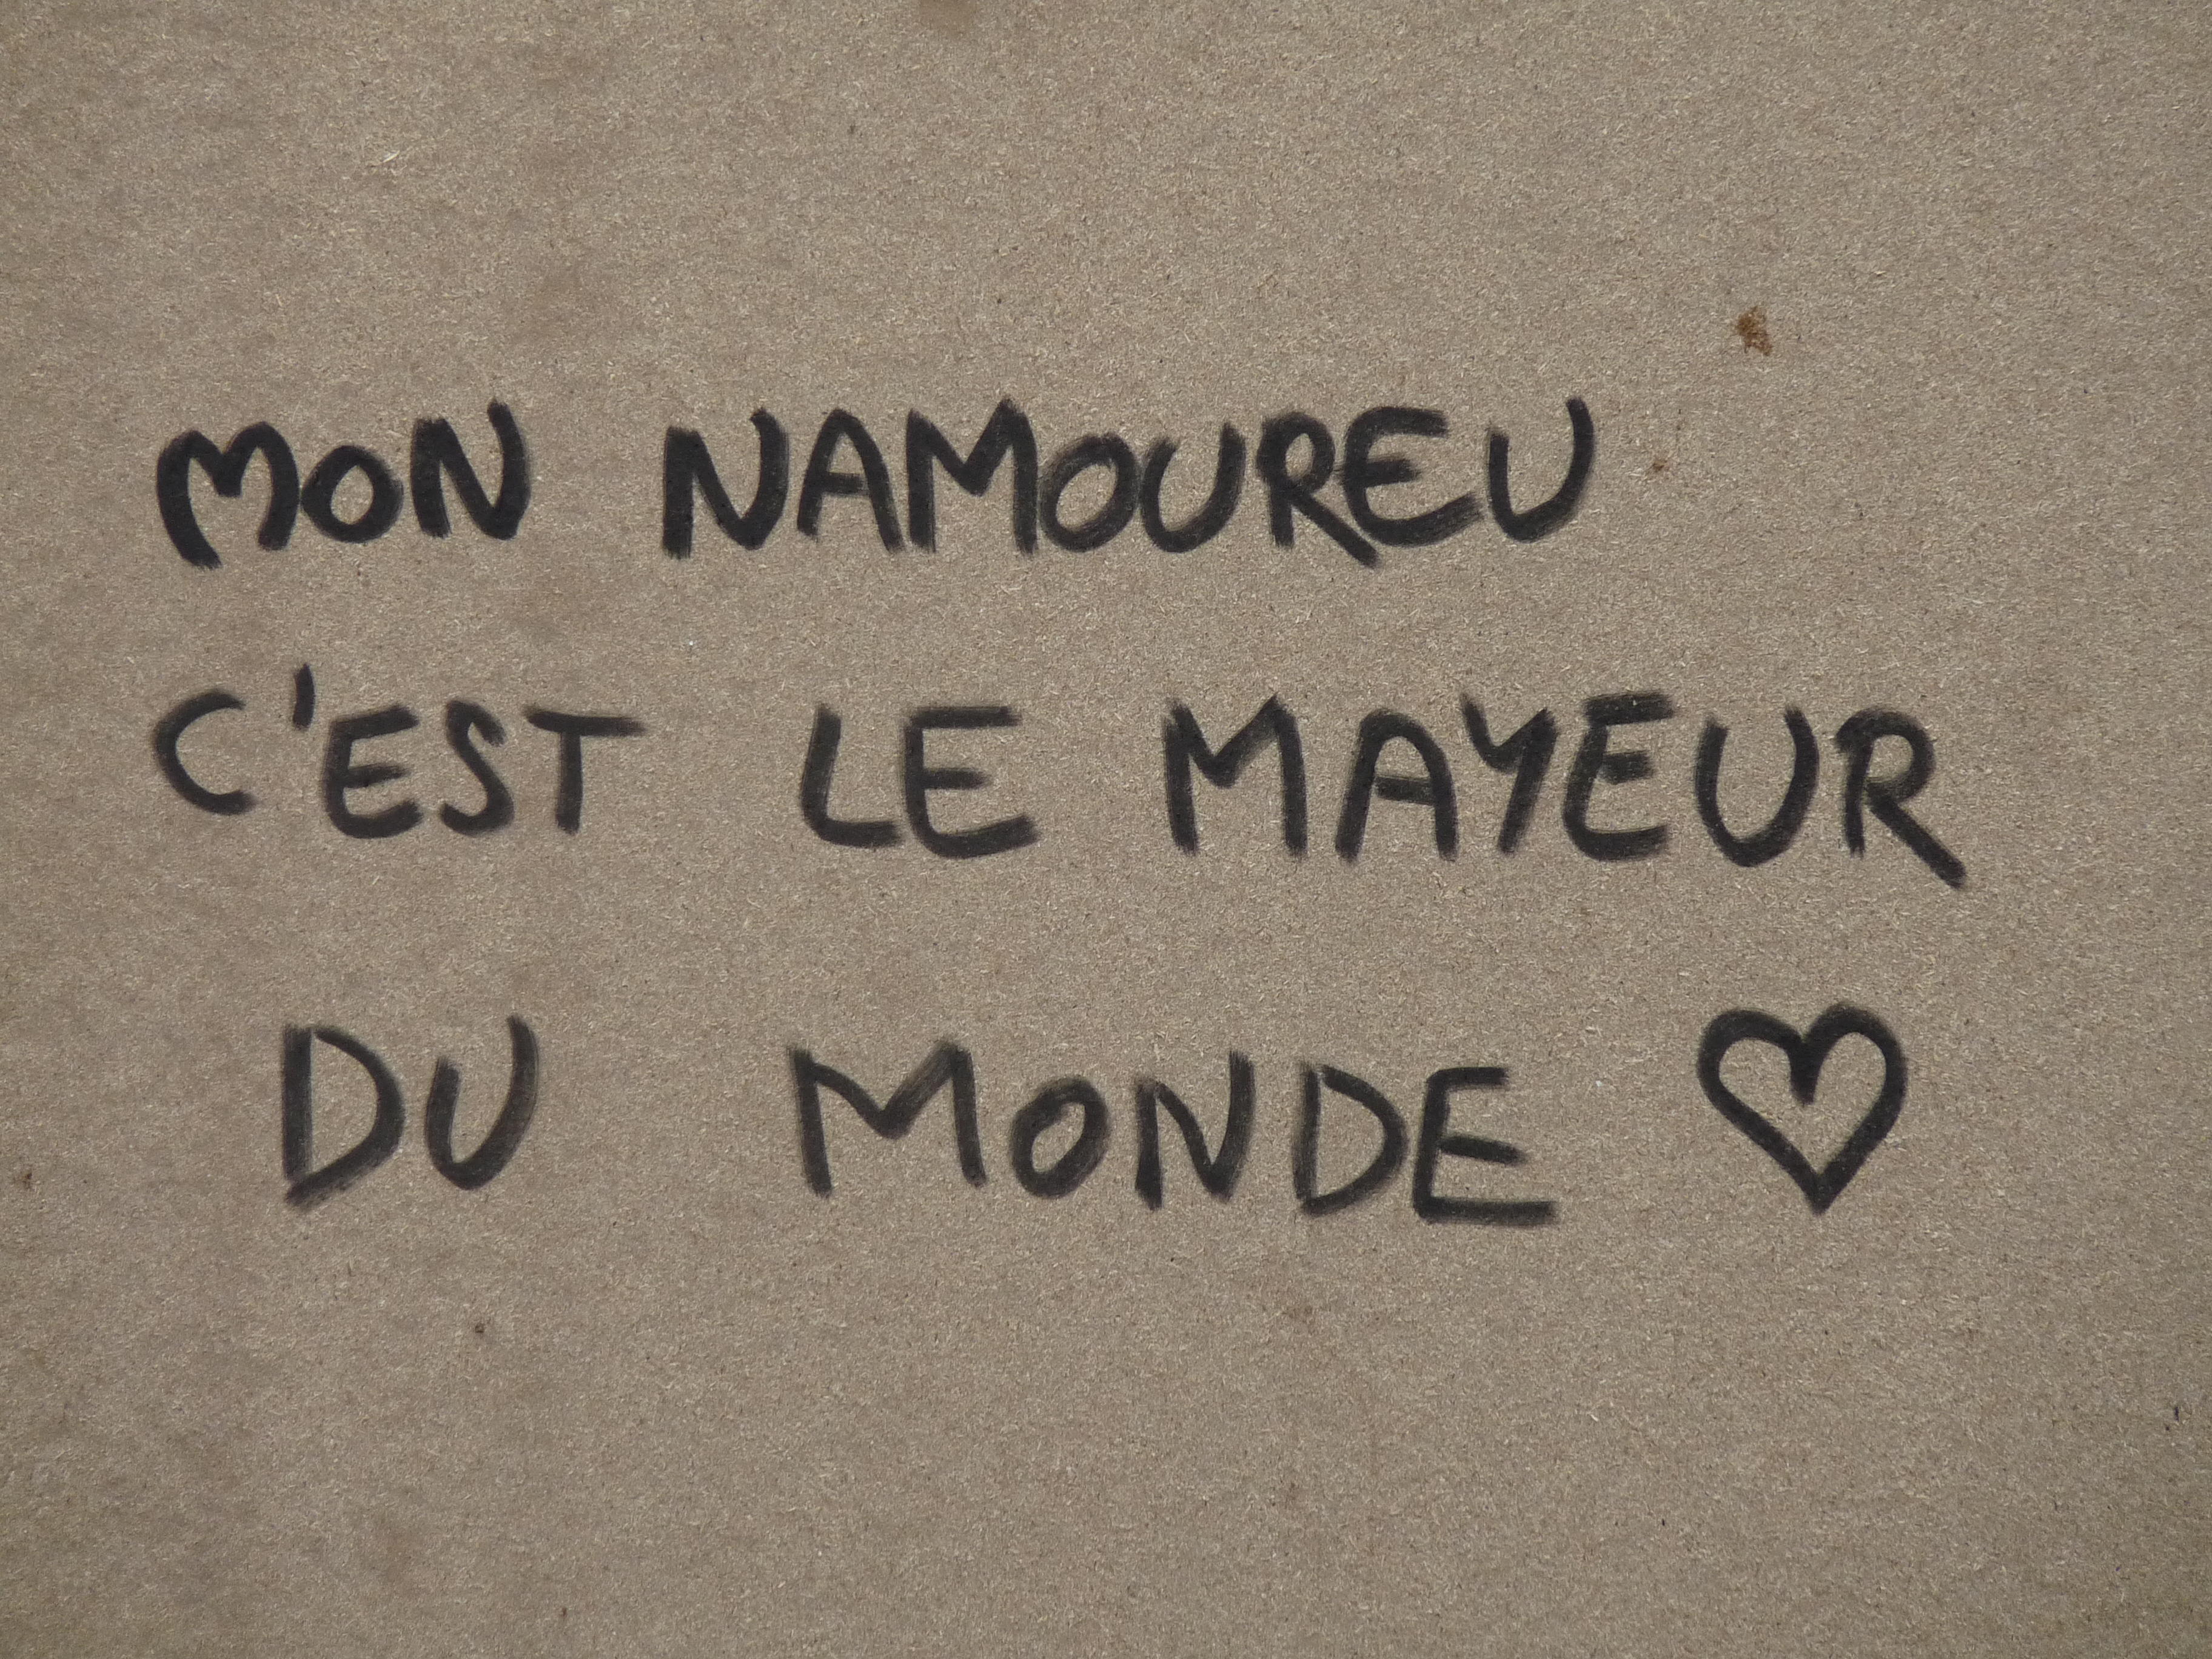 MON NAMOUREU
C'EST LE MAYEUR
DU MONDE ♡